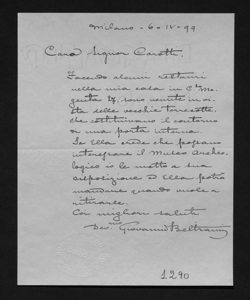 Milano - 6-IV-99
Caro Signor Carotti,
Facendo alcuni restauri
nella mia casa in C.so M
genta 27, sono venute in vi
sta delle vecchie terrecotte
che costituivano il contorno
di una porta interna.
Se Ella crede che possano
interessare il Museo Archeo
logico io le metto a sua
disposizione ed Ella potrà
mandare quando vuole a
ritirarle.
Coi migliori saluti
Dev.mo Giovanni Beltrami
1290